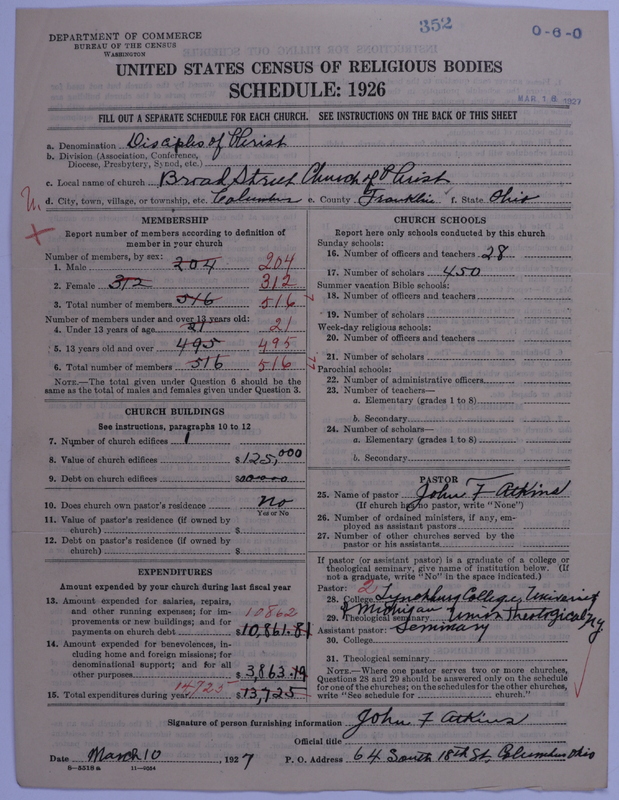 352
0-6-0
DEPARTMENT OF COMMERCE
BUREAU OF THE CENSUS
WASHINGTON
UNITED STATES CENSUS OF RELIGIOUS BODIES
SCHEDULE: 1926
MAR 16 1927
FILL OUT A SEPARATE SCHEDULE FOR EACH CHURCH. SEE INSTRUCTIONS ON THE BACK OF THIS SHEET
a. Denomination Disciples of Christ
b. Division (Association, Conference, Diocese, Presbytery, Synod, etc.)
c. Local name of church Broad Street Church of Christ
d. City, town, village, or township, etc. Columbus e. County Franklin f. State Ohio
MEMBERSHIP
Report number of members according to definition of
member in your church
Number of members, by sex:
1. Male 204 204
2. Female 312 312
3. Total number of members 516 516
Number of members under and over 13 years old:
4. Under 13 years of age 21 21
5. 13 years old and over 495 495
6. Total number of members 516 516
NOTE.—The total given under Question 6 should be the
same as the total of males and females given under Question 3.
CHURCH BUILDINGS
See instructions, paragraphs 10 to 12
7. Number of church edifices 1
8. Value of church edifices $125,000
9. Debt on church edifices $
10. Does church own pastor's residence No
Yes or No
11. Value of pastor's residence (if owned by
church) $
12. Debt on pastor's residence (if owned by
church) $
EXPENDITURES
Amount expended by your church during last fiscal year
13. Amount expended for salaries, repairs,
and other running expenses; for im-
provements or new buildings; and for 10862
payments on church debt $10,861.81
14. Amount expended for benevolences, in-
cluding home and foreign missions; for
denominational support; and for all
other purposes $3,863.19
15. Total expenditures during year 14725 $13,725
CHURCH SCHOOLS
Report here only schools conducted by this church
Sunday schools:
16. Number of officers and teachers 28
17. Number of scholars 450
Summer vacation Bible schools:
18. Number of officers and teachers
19. Number of scholars
Week-day religious schools:
20. Number of officers and teachers
21. Number of scholars
Parochial schools:
22. Number of administrative officers
23. Number of teachers—
a. Elementary (grades 1 to 8)
b. Secondary
24. Number of scholars—
a. Elementary (grades 1 to 8)
b. Secondary
PASTOR
25. Name of pastor John F Atkins
(If church has no pastor, write "None")
26. Number of ordained ministers, if any, em-
ployed as assistant pastors
27. Number of other churches served by the
pastor or his assistants
If pastor (or assistant pastor) is a graduate of a college or
theological seminary, give name of institution below. (If
not a graduate, write "No" in the space indicated.)
Pastor: 2
28. College Lynchburg College, University
29. Theological seminary of Michigan Union Theological NY
Assistant pastor: Seminary
30. College
31. Theological seminary
NOTE.—Where one pastor serves two or more churches,
Questions 28 and 29 should be answered only on the schedule
for one of the churches; on the schedules for the other churches,
write "See schedule for church."
Signature of person furnishing information John F Atkins
Official title
Date March 10, 1927 P. O. Address 64 South 18th St, Columbus Ohio
8—5518 a 11—9264